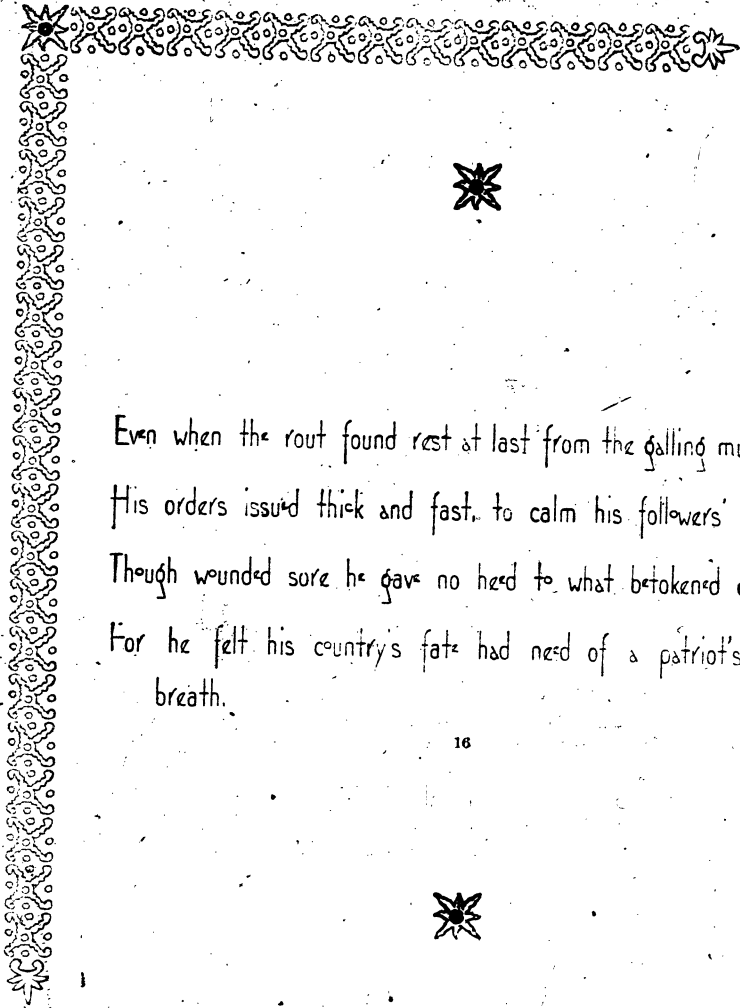 Even when the rout found rest at last from the galling
His orders issued thick and fast, to calm his followers'
Though wounded sore he gave no heed to what betokened
For he felt his country's fate had need of a patriot's
breath.
16